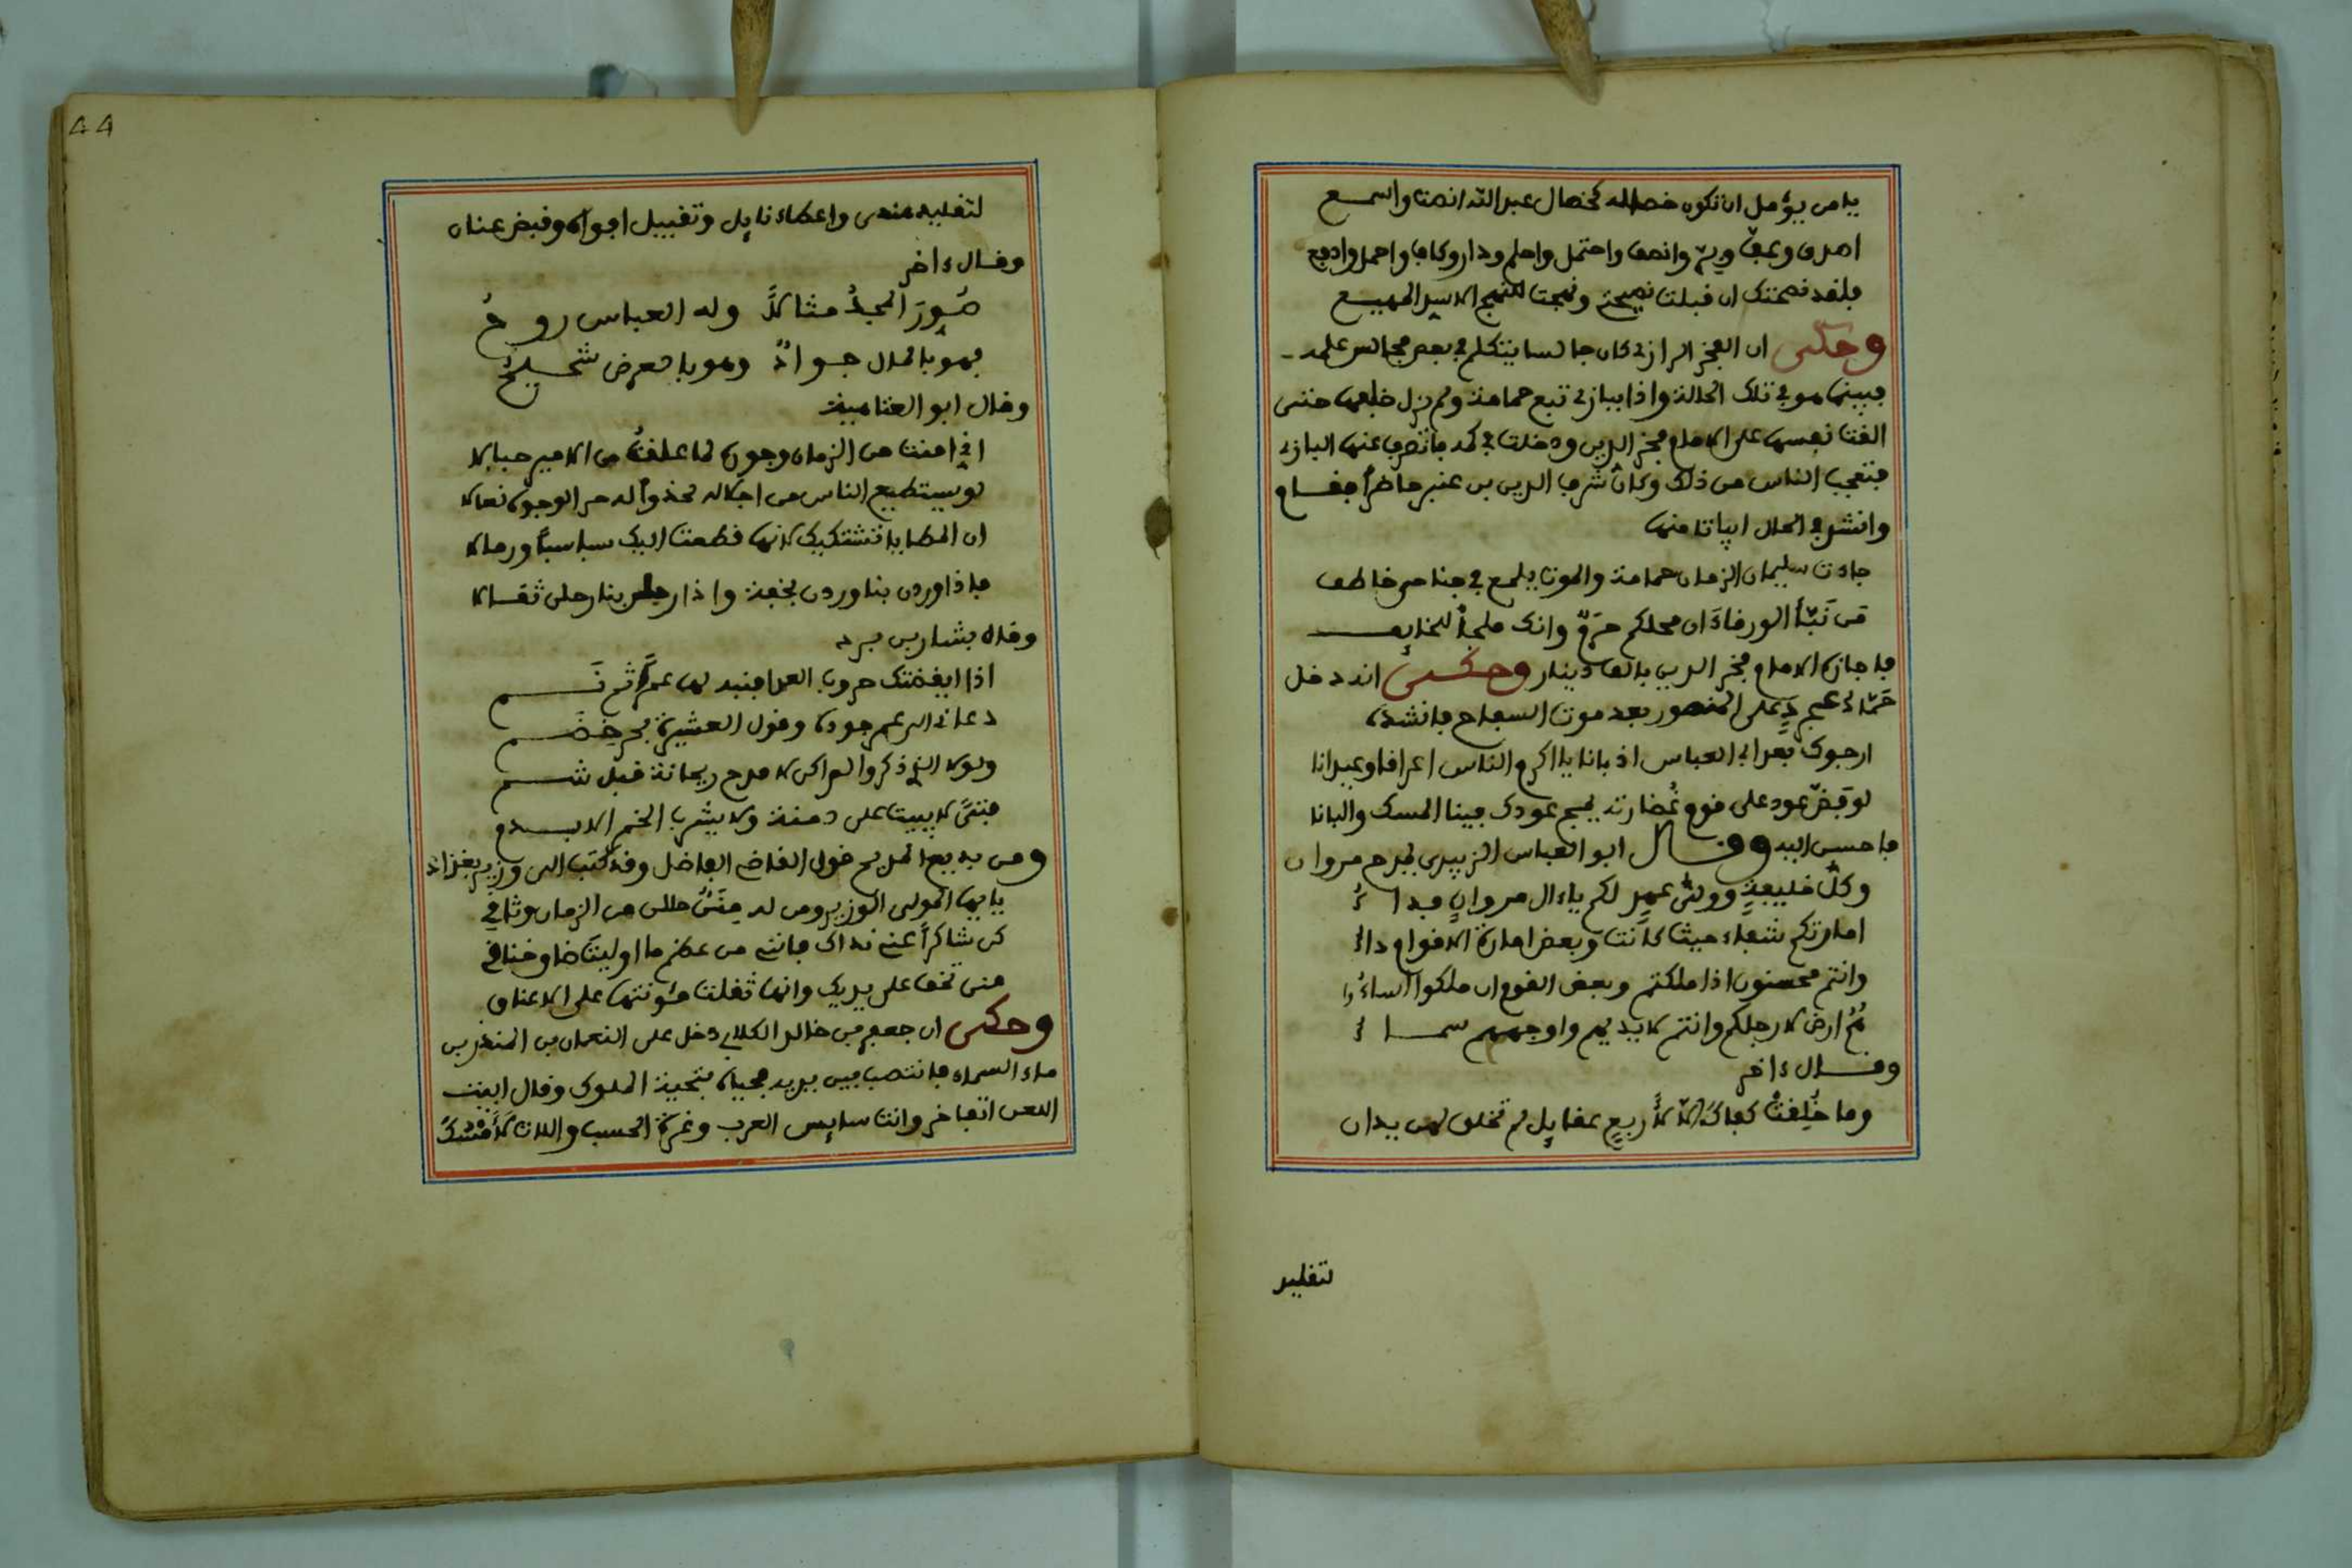 يا من يؤمل ان تكون خصاله كخصال عبد الله انصت واسمع
اصدق وعف وبر وانصف واحتمل واحلم ودار وكاف واحمل وادفع
فلقد نصحتك ان قبلت نصيحتي ونهجت للنهج الاسد المهيع
وحكى ان الفخر الرازي كان جالسا يتكلم في بعض مجالس علمه
فبينما هو في تلك الحالة واذا ببازي تبع حمامة ولم يزل خلفها حتى
القت نفسها على الامام فخر الدين ودخلت في كمه فانصرف عنها البازي
فتعجب الناس من ذلك وكان شرف الدين بن عنين حاضرا فقام
وانشد في الحال ابياتا منها
جاءت سليمان الزمان حمامة والموت يلمع في جناحي خاطف
من نبّأ الورقاءَ ان محلكم حرمٌ وانك ملجأ للخايف
فاجازه الامام فخر الدين بالف دينار وحكى انه دخل
حمّاد عجرد على المنصور بعد موت السفاح فانشده
ارجوك بعد ابي العباس اذ بانا يا اكرم الناس اعراقا وعيدانا
لو مَجّ عود على قوم عُضارته لمج عودك فينا المسك والبانا
فاحسن اليه وقال ابو العباس الزبيري يمدح مروان
وكلّ خليفةٍ وولىّ عهدٍ لكم يا ءال مروانٍ فداءُ
امارتكم شفاء حيث كانت وبعض امارة الاقوام داءُ
وانتم محسنون اذا ملكتم وبعض القوم ان ملكوا اساءُوا
همُ ارض لارجلكم وانتم لايديهم واوجههم سماءُ
وقال ءاخر
وما خُلِقتْ كفاكَ الّا لأربعٍ عقايل لم تخلق لهن يدان
لتقليد
44
لتقليد هندى واعطاء نايل وتقبيل افواه وقبض عنان
وقال ءاخر
صُوِّرَ المجدُ مثالاً وله العباس روحُ
فهو بالمال جوادٌ وهو بالعرض شحيحُ
وقال ابو العتاهية
اني امنت من الزمان وجوره لما علقتُ من الامير حبالا
لو يستطيع الناس من اجلاله لحذوا له حر الوجوه نعالا
ان المطايا تشتكيك لانها قطعت اليك سباسباً ورمالا
فاذا وردن بنا وردن بخفة واذا رجعن بنا رجعن ثقالا
وقال بشار بن برد
اذا ايقضتك حروب العدا فنبه لها عمراً ثم نم
دعانى الى عمر جوده وقول العشيرة بحر خضم
ولولا الذي ذكروا لم اكن لامدح ريحانة قبل شم
فتىً لا يبيت على دمنة ولا يشرب الخمر الا بدم
ومن بديع المديح قول القاضي الفاضل وقد كتب الى وزير بغداد
يا ايها المولى الوزير ومن له مِنَنٌ حللن من الزمان وثاقي
كن شاكراً عني نداك فانني من عظم ما اوليت ضاق خناقي
منن تخف على يديك وانما ثقلت مئونتها على الاعناق
وحكى ان جعفر بن خالد الكلابي دخل على النعمان بن المنذر بن
ماء السماء فانتصب بين يديه فحياه بتحية الملوك وقال ابيت
اللعن اتفاخر وانت سايس العرب وغرة الحسب واللات لأمسُكَ